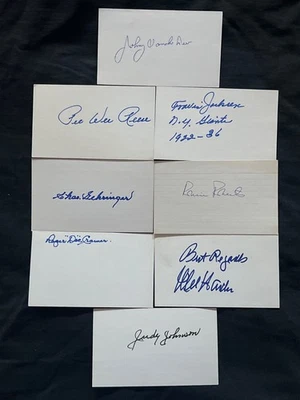 Johnny Vander Meer
Pee Wee Reese
Travis Jackson
N.Y. Giants
1922-36
Chas. Gehringer
Roger "Doc" Cramer
Best Regards
Mel Harder
Judy Johnson